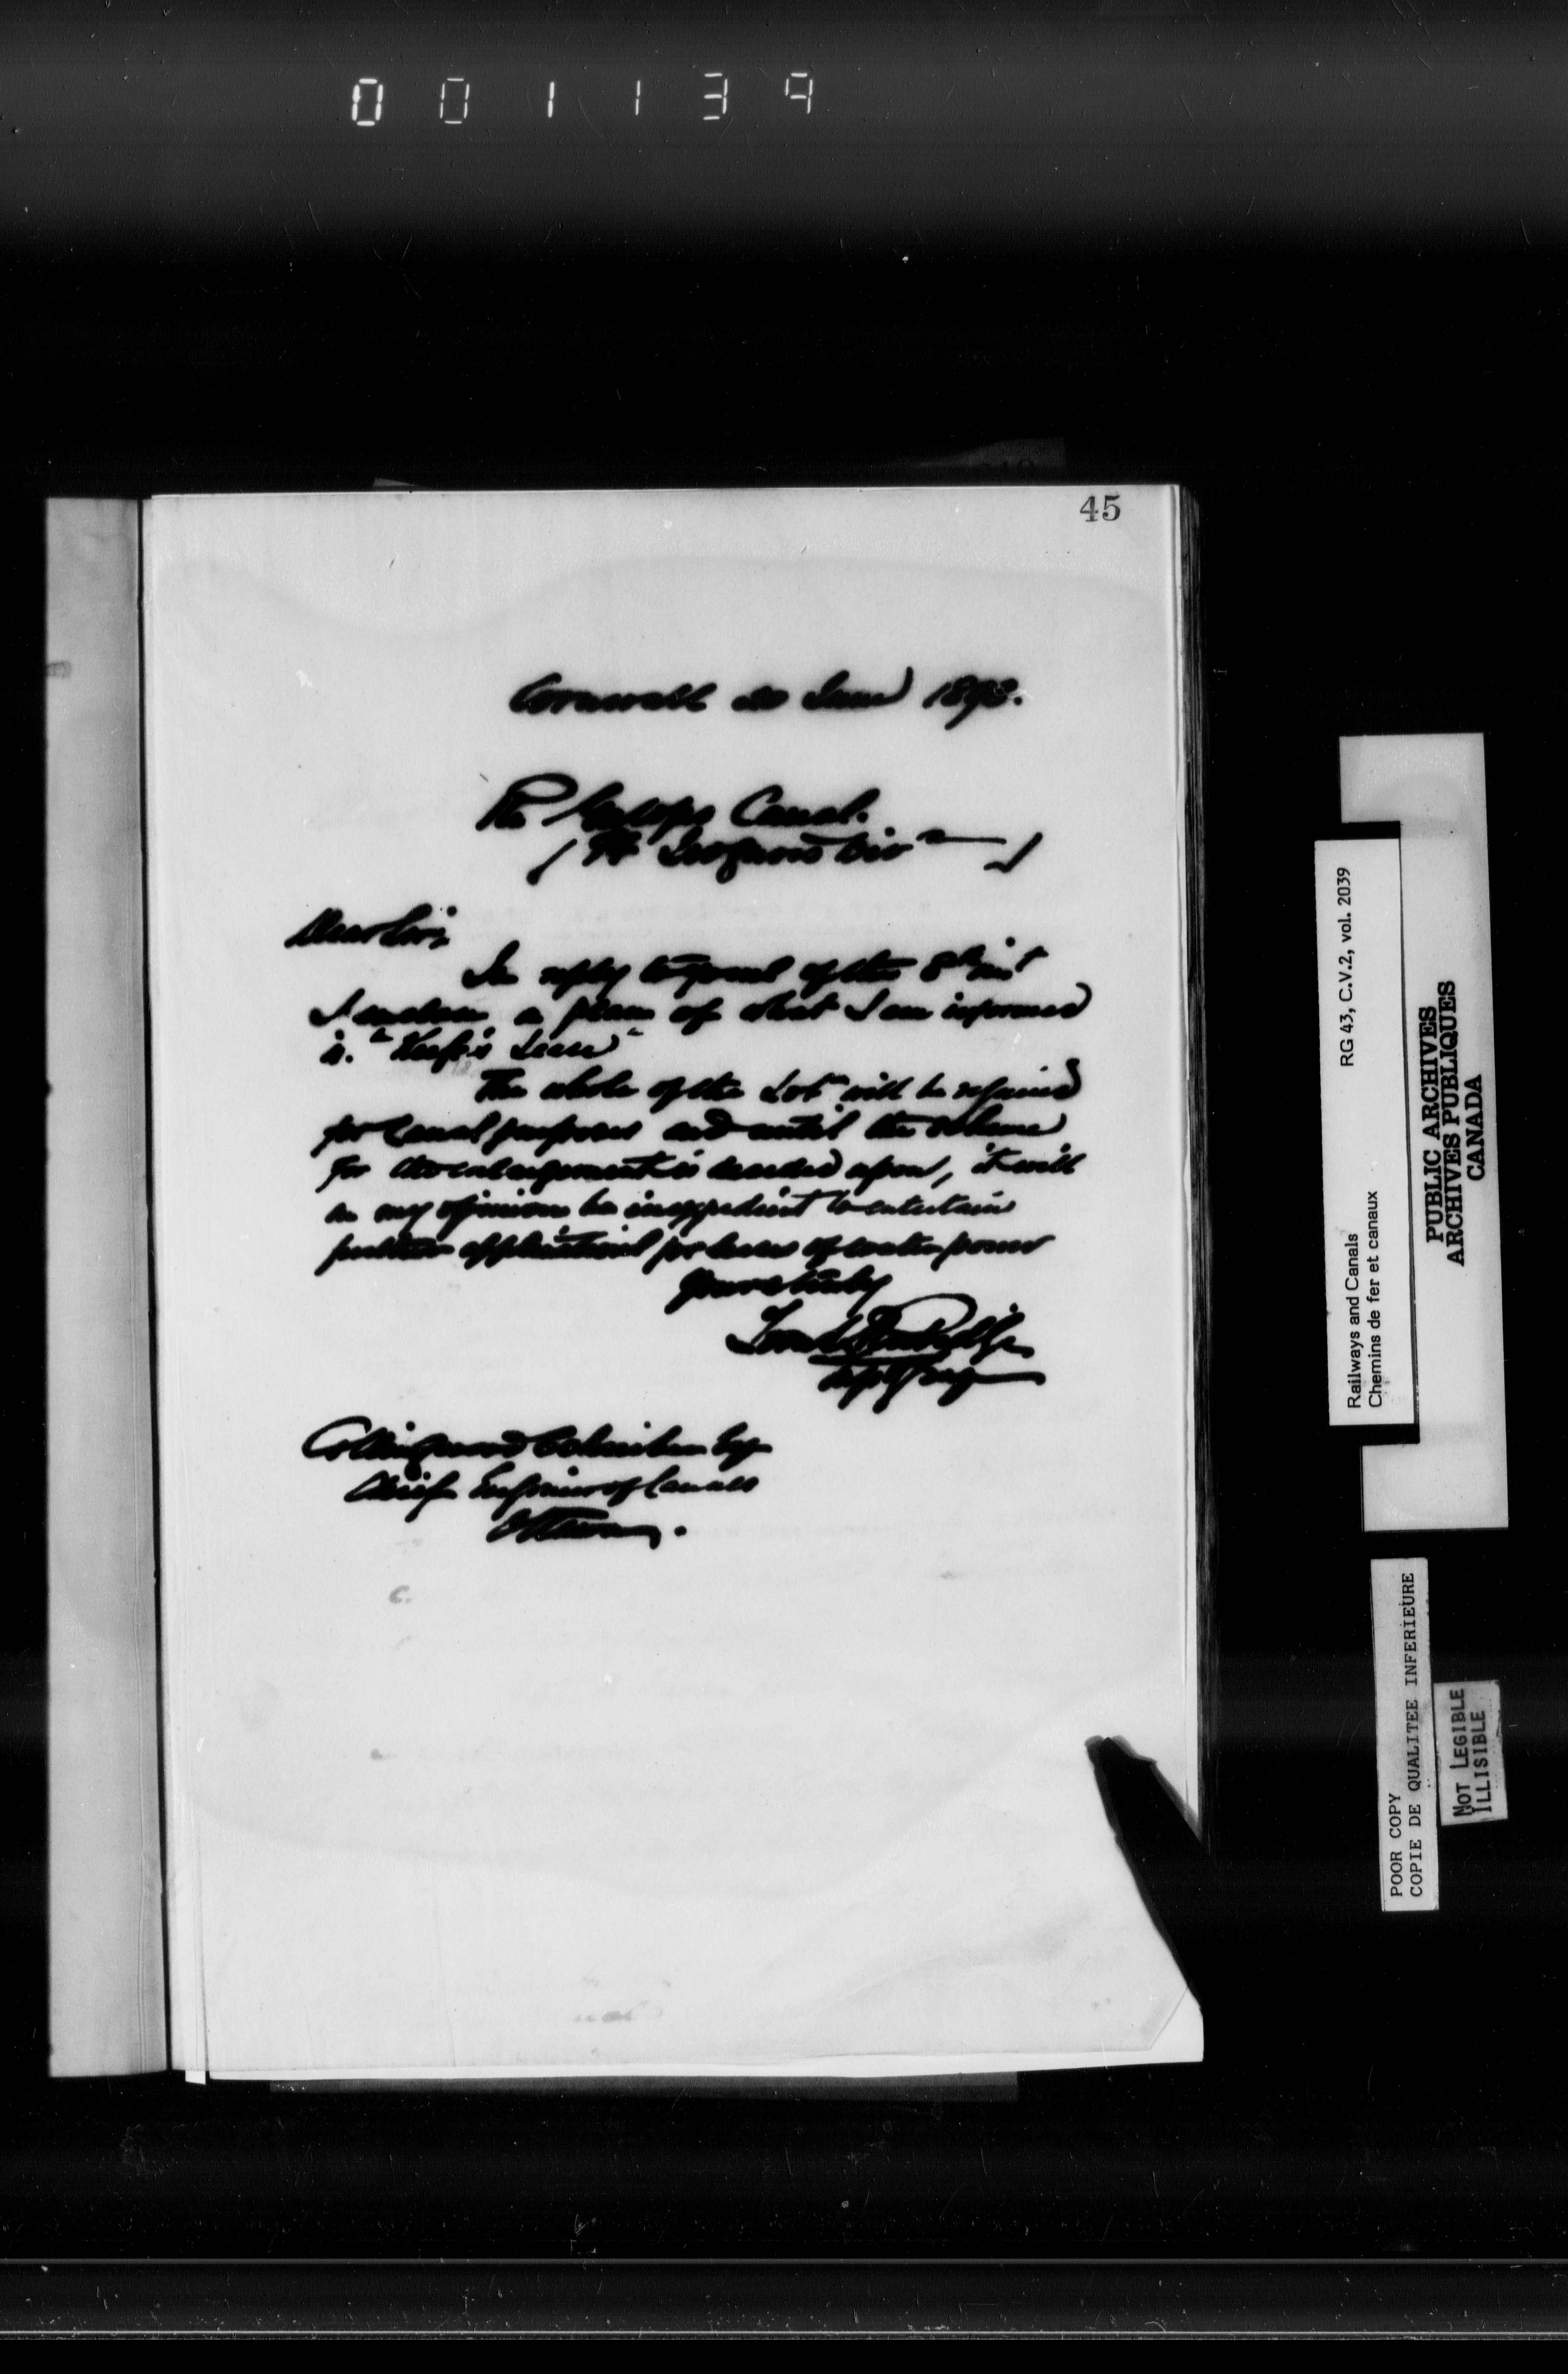 001139
45
Cornwall 20 June 1893.
Re Galops Canal.
( Iroquois Divn )
Dear Sir,
In reply to yours of the 8th inst
I enclose a plan of what I am informed
is "Keefe's Lease"
The whole of the Lot will be required
for Canal purposes and until the scheme
for the enlargement is decided upon, it will
in my opinion be inexpedient to entertain
further applications for leases of water power
Yours truly
Supt Eng
Collingwood Schreiber Esq
Chief Engineer of Canals
Ottawa.
RG 43, C.V.2, vol. 2039
Railways and Canals
Chemins de fer et canaux
PUBLIC ARCHIVES
ARCHIVES PUBLIQUES
CANADA
POOR COPY
COPIE DE QUALITEE INFERIEURE
NOT LEGIBLE
ILLISIBLE